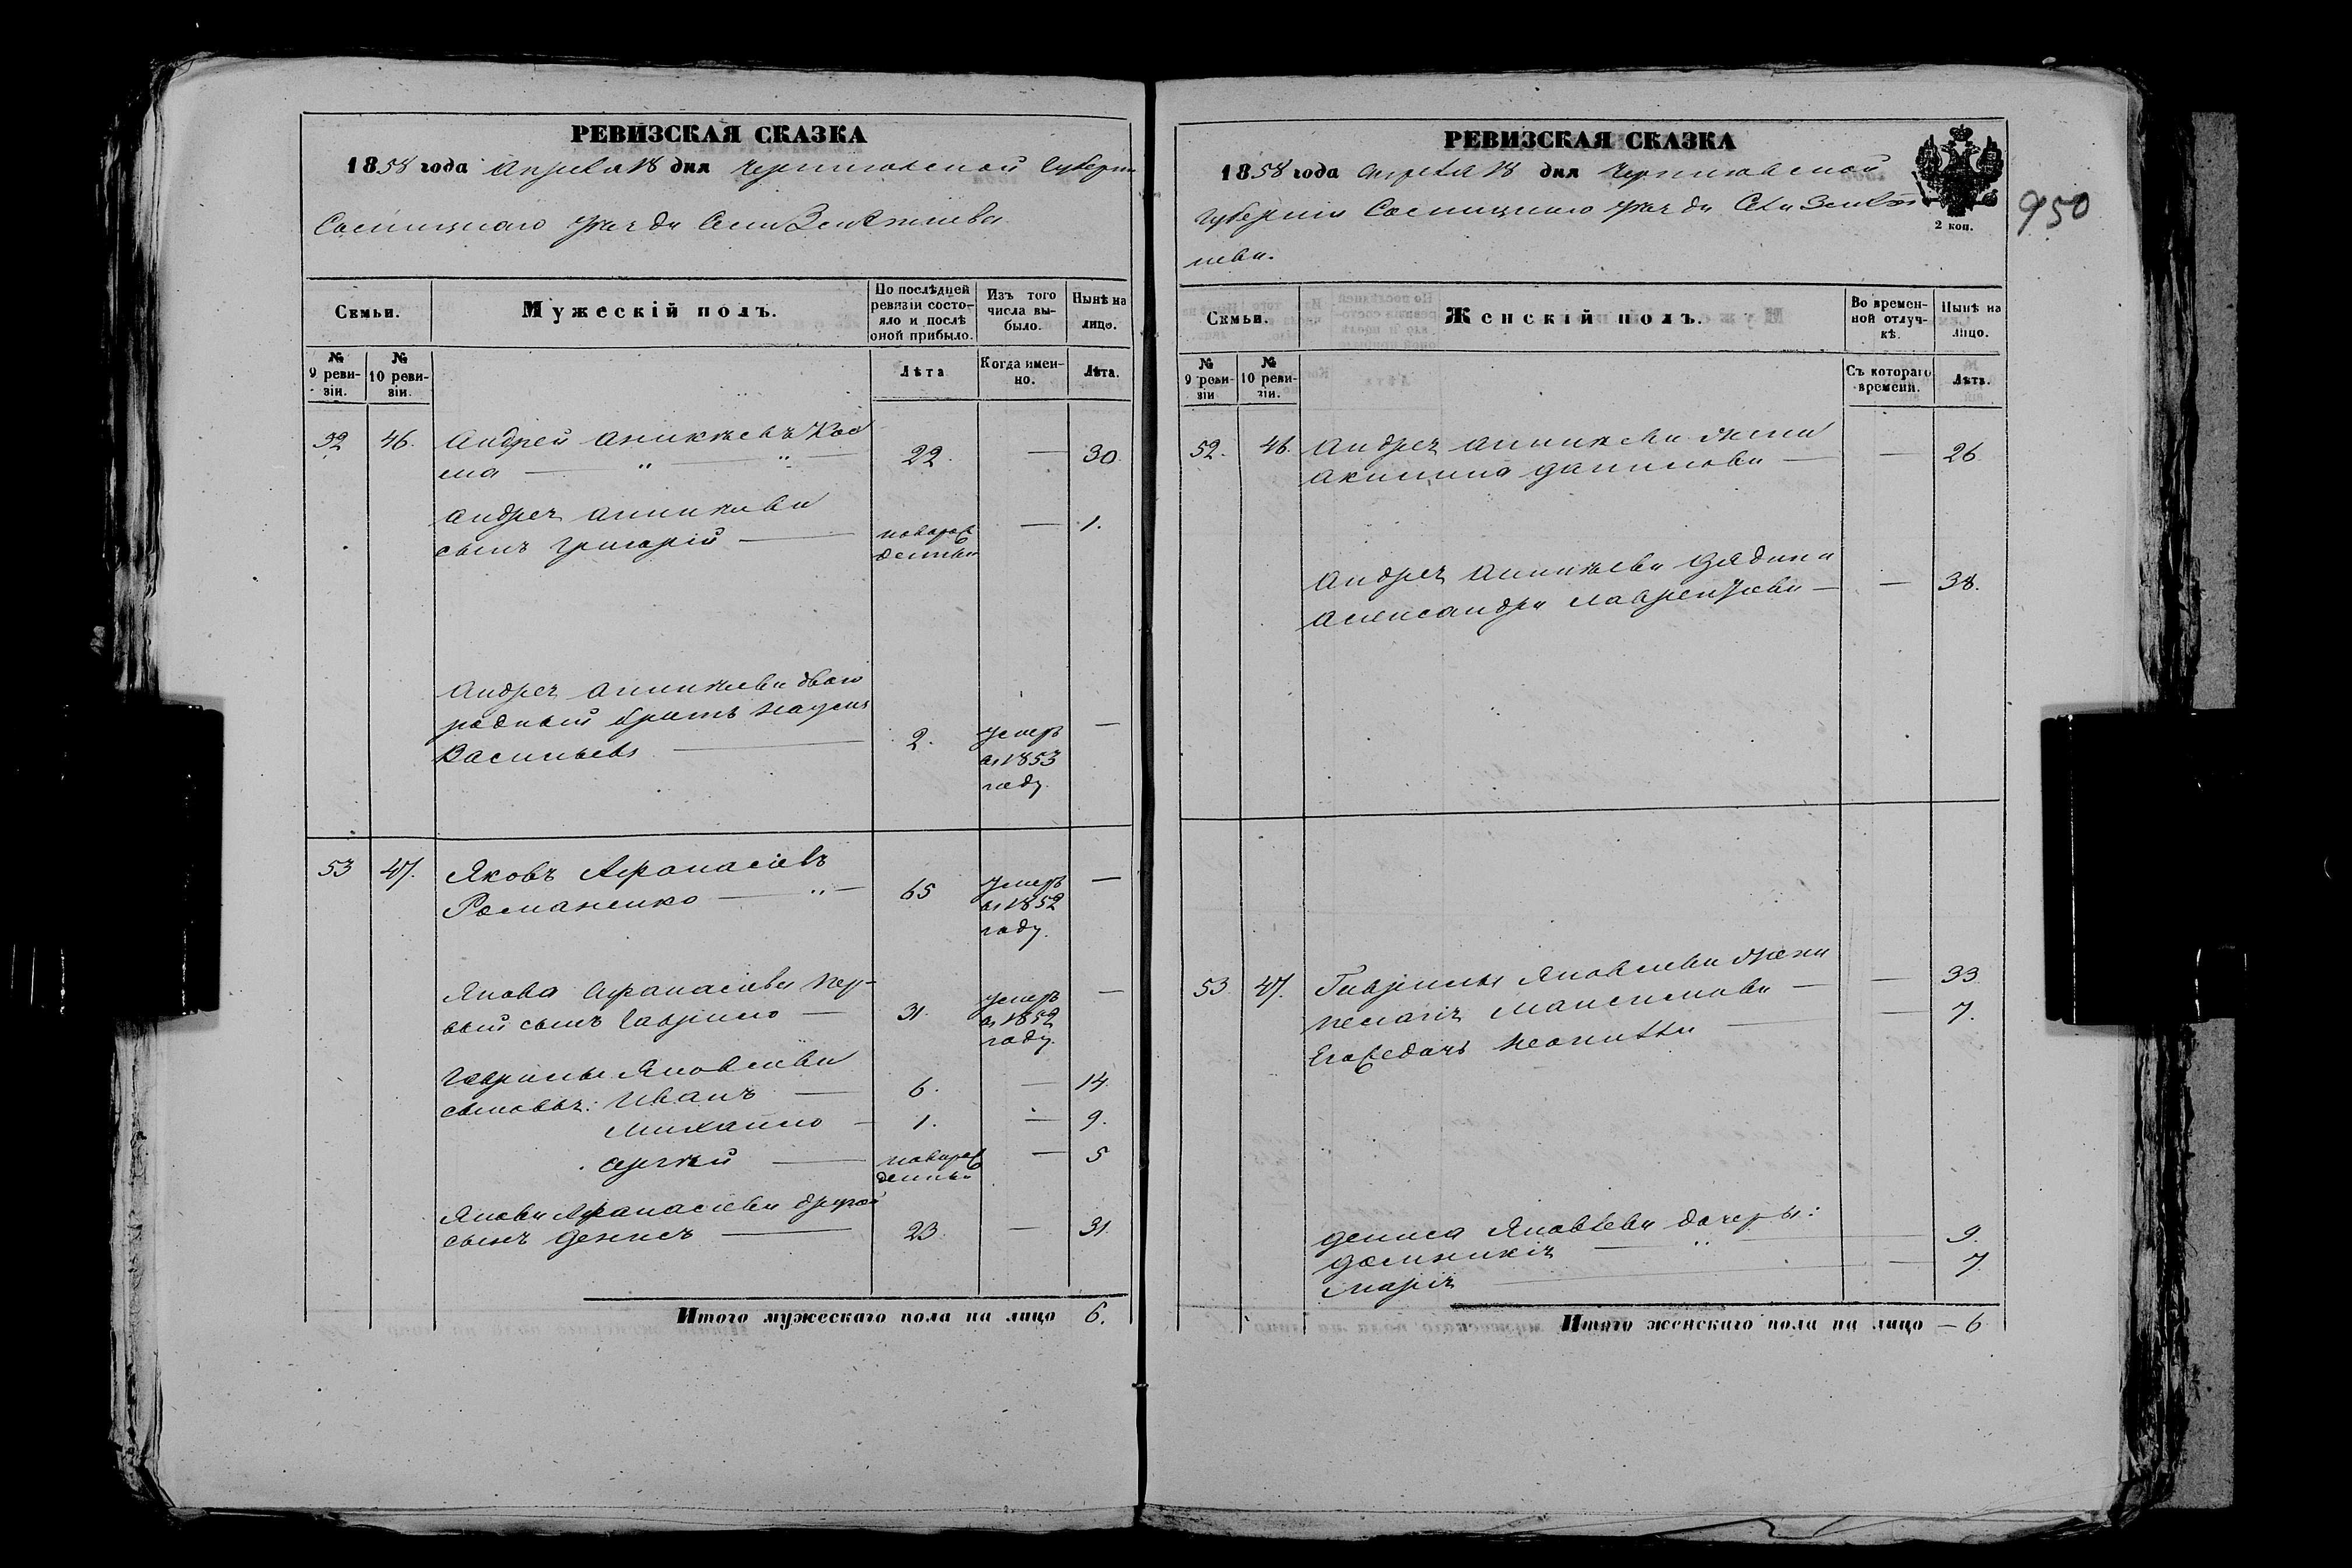 РЕВИЗСКАЯ СКАЗКА
1858 года Апреля 18 дня Черниговской Губерни
Сосницкаго уезда Села
Семьи.
Мужескій полъ.
По послѣдней ревизіи состояло и послѣ оной прибыло.
Изъ того числа выбыло.
Нынѣ на лицо.
№ 9 ревизіи.
№ 10 ревизіи.
Лѣта
Когда именно.
Лѣта.
52 46. Андрей Аникѣевъ Кос
ма — " — " — 22. — 30.
Андрея Аникиева
сынъ Григорій — новорож — 1.
денный
Андрея Аникиева двою
родный братъ Наумъ
Васильевъ — 2. умеръ —
въ 1853
году.
53 47. Яковъ Афанасіевъ
Романенко — " — 65 умеръ —
въ 1852
году.
Якова Афанасіева пер-
вый сынъ Гаврило — 31. умеръ —
въ 1852
году.
Гаврилы Яковлева
сыновья: Иванъ — 6. — 14.
Михайло — 1. — 9.
Сергѣй — новорож — 5
денный
Якова Афанасіева другой
сынъ Денисъ — 23. — 31.
Итого мужескаго пола на лицо 6.
РЕВИЗСКАЯ СКАЗКА
1858 года Апреля 18 дня Черниговской
Губерніи Сосницкаго уезда Села
нева.
2 коп.
950
Семьи.
Женскій полъ.
Во временной отлучкѣ.
Нынѣ на лицо.
№ 9 ревизіи
№ 10 ревизіи.
Съ котораго времени.
Лѣта.
52. 46. Андрея Аникиева жена
Акилина Данилова — — 26.
Андрея Аникиева дядина
Александра Лаврентіева — — 38.
53 47. Гаврилы Яковлева жена — 33.
Пелагія Максимова — — 7.
Его дочь
Дениса Яковлева дочеры:
Домникія — " — 9.
Марія — — 7
Итого женскаго пола на лицо — 6